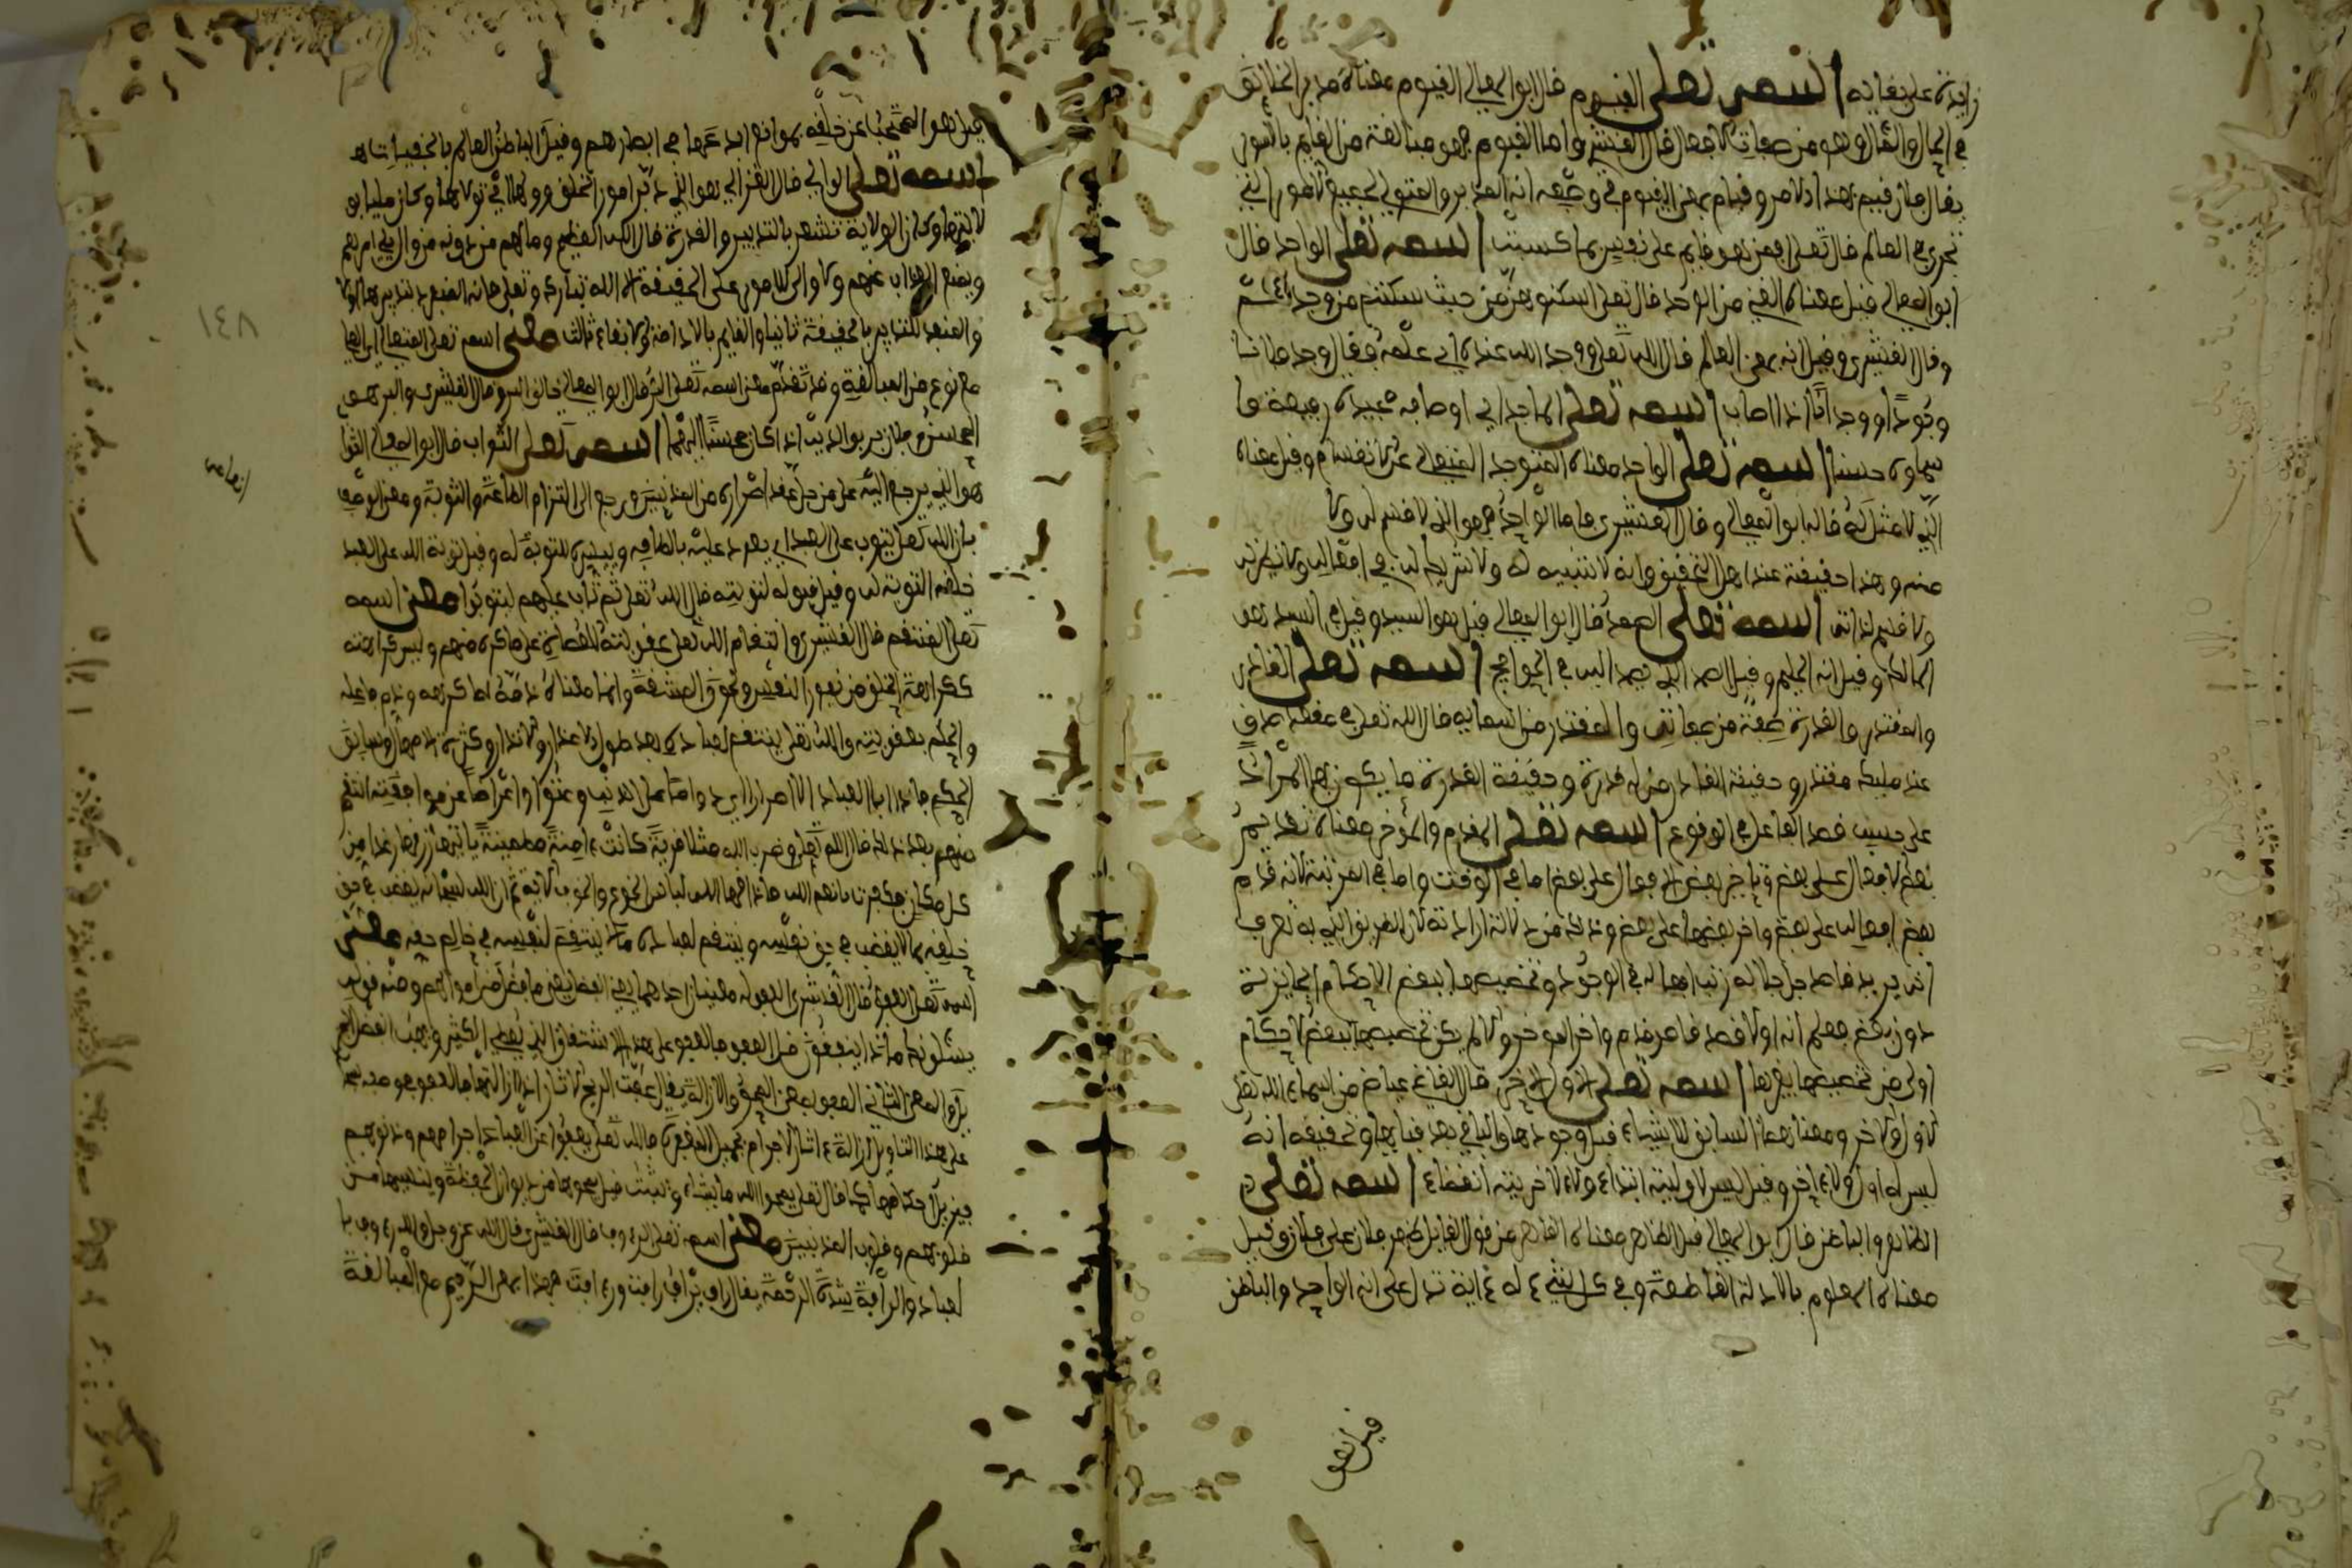 زايدة على بقايه اسمه تعلى القيوم قال ابو المعالي القيوم معناه مدبر الخلائق
في الحال والمئال وهو من صفات الافعال قال القشيري واما القيوم فهو مبالغة من القايم بالامور
يقال فلان قيم بهذا الامر وقيام بمعنى القيوم في وصفه انه المدبر والمتولي لجميع الامور التي
تجري في العالم قال تعلى افمن هو قايم على كل نفس بما كسبت اسمه تعلى الواجد قال
ابو المعالي قيل معناه الغني من الوجد قال تعلى اسكنوهن من حيث سكنتم من وجدكم
وقال القشيري وقيل انه بمعنى العالم قال الله تعلى ووجد الله عنده اي علمه يقال وجد
وجودا ووجدانا اذا اصاب اسمه تعلى الماجد اي اوصافه مجيدة رفيعة
حسنا اسمه تعلى الواحد معناه المتوحد المتعالي عن الانقسام وقيل معناه
الذي لا مثل له قاله ابو المعالي وقال القشيري فاما الواحد فهو الذي لا قسم له ولا
منه وهذا حقيقة عند اهل التحقيق وانه لا شبيه له ولا شريك له في افعاله ولا نظير له
ولا قسيم لذاته اسمه تعلى الصمد قال ابو المعالي قيل هو السيد وقيل السيد هو
المالك وقيل انه الحليم وقيل الصمد الذي يصمد اليه في الحوايج اسمه تعلى القادر
والمقتدر والقدرة صفة من صفاته والمقتدر من اسمايه قال الله تعلى في مقعد صدق
عند مليك مقتدر وحقيقة القادر من له قدرة وحقيقة القدرة ما يكون بها المراد
على حسب قصد الفاعل في الوقوع اسمه تعلى المقدم والمؤخر معناه تقديم
بعض الافعال على بعض وتاخير بعض الافعال على بعض اما في الوقت واما في المرتبة لانه قدم
بعض افعاله على بعض واخر بعضها على بعض وذلك من دلالة ارادته لان الطريق الذي به تعرف
انه يريد قاصد جل جلاله ترتيب افعاله في الوجود وتخصيصها ببعض الاحكام الجايزة
دون بعض فعلم انه لولا قصد قاصر قدم واخر المؤخر والا لم يكن تخصيصها ببعض الاحكام
اولى من تخصيصها بغيرها اسمه تعلى الاول الاخر قال القاضي عياض من اسماء الله تعلى
الاول والاخر ومعناهما السابق للاشياء قبل وجودها والباقي بعد فنايها وتحقيقه انه
ليس له اول ولا ءاخر وقيل ليس لاوليته ابتداء ولا لاخريته انقضاء اسمه تعلى
الظاهر والباطن قال ابو المعالي قيل الظاهر معناه القاهر من قول القايل ظهر فلان على فلان وقيل
معناه المعلوم بالادلة القاطعة وفي كل شيء له ءاية تدل على انه الواحد والباطن
قيل هو
قيل هو المحتجب عن خلقه بموانع ابدعها في ابصارهم وقيل الباطن العالم بالخفيات
اسمه تعلى الوالي قال الغزالي هو الذي دبر امور الخلق ووليها اي تولاها وكان مليا
لايتها وكان الولاية تشعر بالتدبير والقدرة قال الله العظيم وما لهم من دونه من وال يلي امرهم
ويمنع العذاب عنهم ولا والي للامور على الحقيقة الا الله تبارك وتعلى فانه المنفرد بتدبيرها اولا
والمنفذ للتدبير بالحقيقة ثانيا والقايم بالادامة والابقاء ثالث معنى اسمه تعلى المتعالي
مع نوع من المبالغة وقد تقدم معنى اسمه تعلى البر قال ابو المعالي خالق البر وقال القشيري والبر هو
المحسن فلان بر بوالديه اذا كان محسنا اليهما اسمه تعلى التواب قال ابو المعالي التواب
هو الذي يرجع اليه على من حل عقد اصراره من المذنبين ورجع الى التزام الطاعة والتوبة ومعنى الوصف
بان الله تعلى يتوب على العبد اي يعود عليه بالطافه وييسره للتوبة له وقيل توبة الله على العبد
خلقه التوبة له وقيل قبوله لتوبته قال الله تعلى ثم تاب عليهم ليتوبوا معنى اسمه
تعلى المنتقم قال القشيري وانتقام الله تعلى عقوبته للعصاة على ما كره منهم وليس كراهته
ككراهة الخلق من نفور النفس ولحوق المشقة وانما معناه ذمه لما كرهه وذم فاعله
والحكم بعقوبته والله تعلى ينتقم لعباده بعد طول الاعذار والانذار وكثرة الامهال وسابق
الحكم فاذا ابا العباد الا اصرارا وامتا على الذنب وعتوا واعراضا عن موافقته انتقم
منهم بعد ذلك قال الله تعلى وضرب الله مثلا قرية كانت ءامنة مطمينة ياتيها رزقها رغدا من
كل مكان فكفرت بانعم الله فاذاقها الله لباس الجوع والخوف الاية ثم ان الله سبحانه يغضب في حق
خلقه بما لا يغضب في حق نفسه وينتقم لعباده ما لا ينتقم لنفسه في خالص حقه معنى
اسمه تعلى العفو قال القشيري العفو له معنيان احدهما بمعنى الفضل يعني ما فضل من اموالهم ومنه قوله
يسئلونك ماذا ينفقون قل العفو فالعفو على هذا الاشتقاق الذي يعطي الكثير ويهب الفضل
والمعنى الثاني العفو بمعنى المحو والازالة يقال عفت الريح الاثار اذا ازالتها فالعفو هو منه تعلى
على هذا التاويل ازالة ءاثار الاجرام بجميل المغفرة فالله تعلى يعفوا عن العباد اجرامهم وذنوبهم
فيزيل احكامها كما قال تعلى يمحوا الله ما يشاء ويثبت قيل يمحوها من ديوان الحفظة وينسيها من
قلوبهم وقلوب المذنبين معنى اسمه تعلى الرءوف قال القشيري قال الله عز وجل والله رءوف با
لعباد والرافة شدة الرحمة يقال راف يراف رافة ورءافة فهذا بمعنى الرحيم مع المبالغة
١٤٨